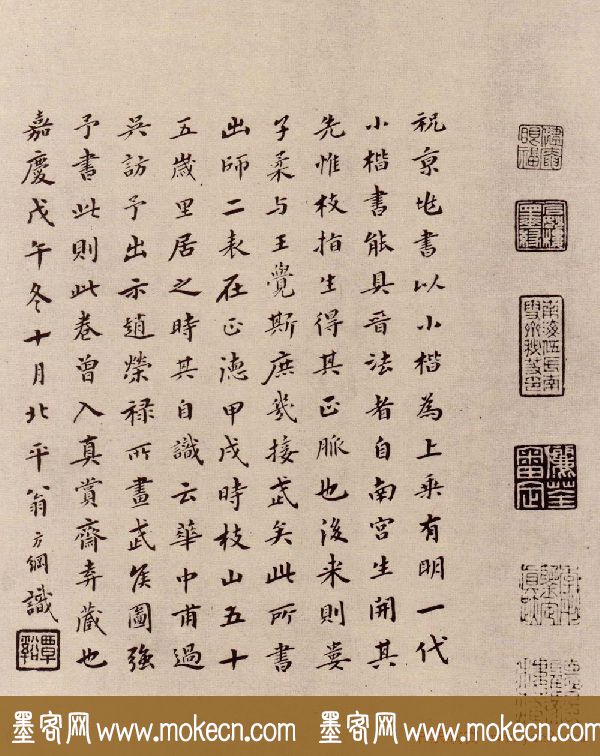 祝京兆書以小楷為上乘有明一代
小楷書能具晉法者自南宮生開其
先惟枝指生得其正脈也後来則婁
子柔与王覺斯庶幾接武矣此所書
出師二表在正德甲戌時枝山五十
五歲里居之時其自識云華中甫過
吳訪予出示趙榮祿所畫武侯圖強
予書此則此卷曾入真賞齋弆藏也
嘉慶戊午冬十月北平翁方綱識
覃谿
南海伍氏南雪齋秘笈印
儷荃審定
墨客网 www.mokecn.com 墨客网 www.mokecn.com